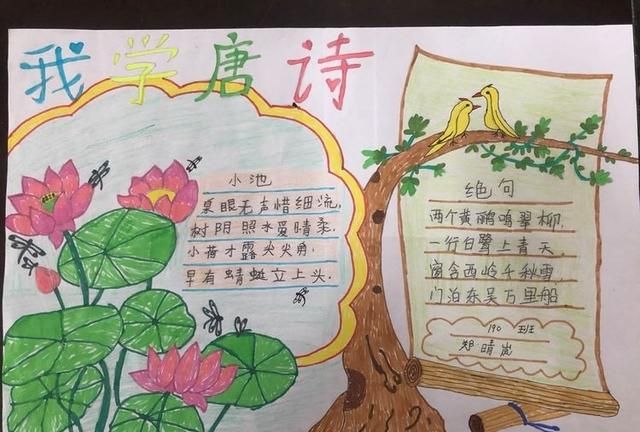 我学唐诗
小池
泉眼无声惜细流,
树阴照水爱晴柔.
小荷才露尖尖角,
早有蜻蜓立上头.
绝句
两个黄鹂鸣翠柳,
一行白鹭上青天.
窗含西岭千秋雪
门泊东吴万里船
190 班
郑晴岚